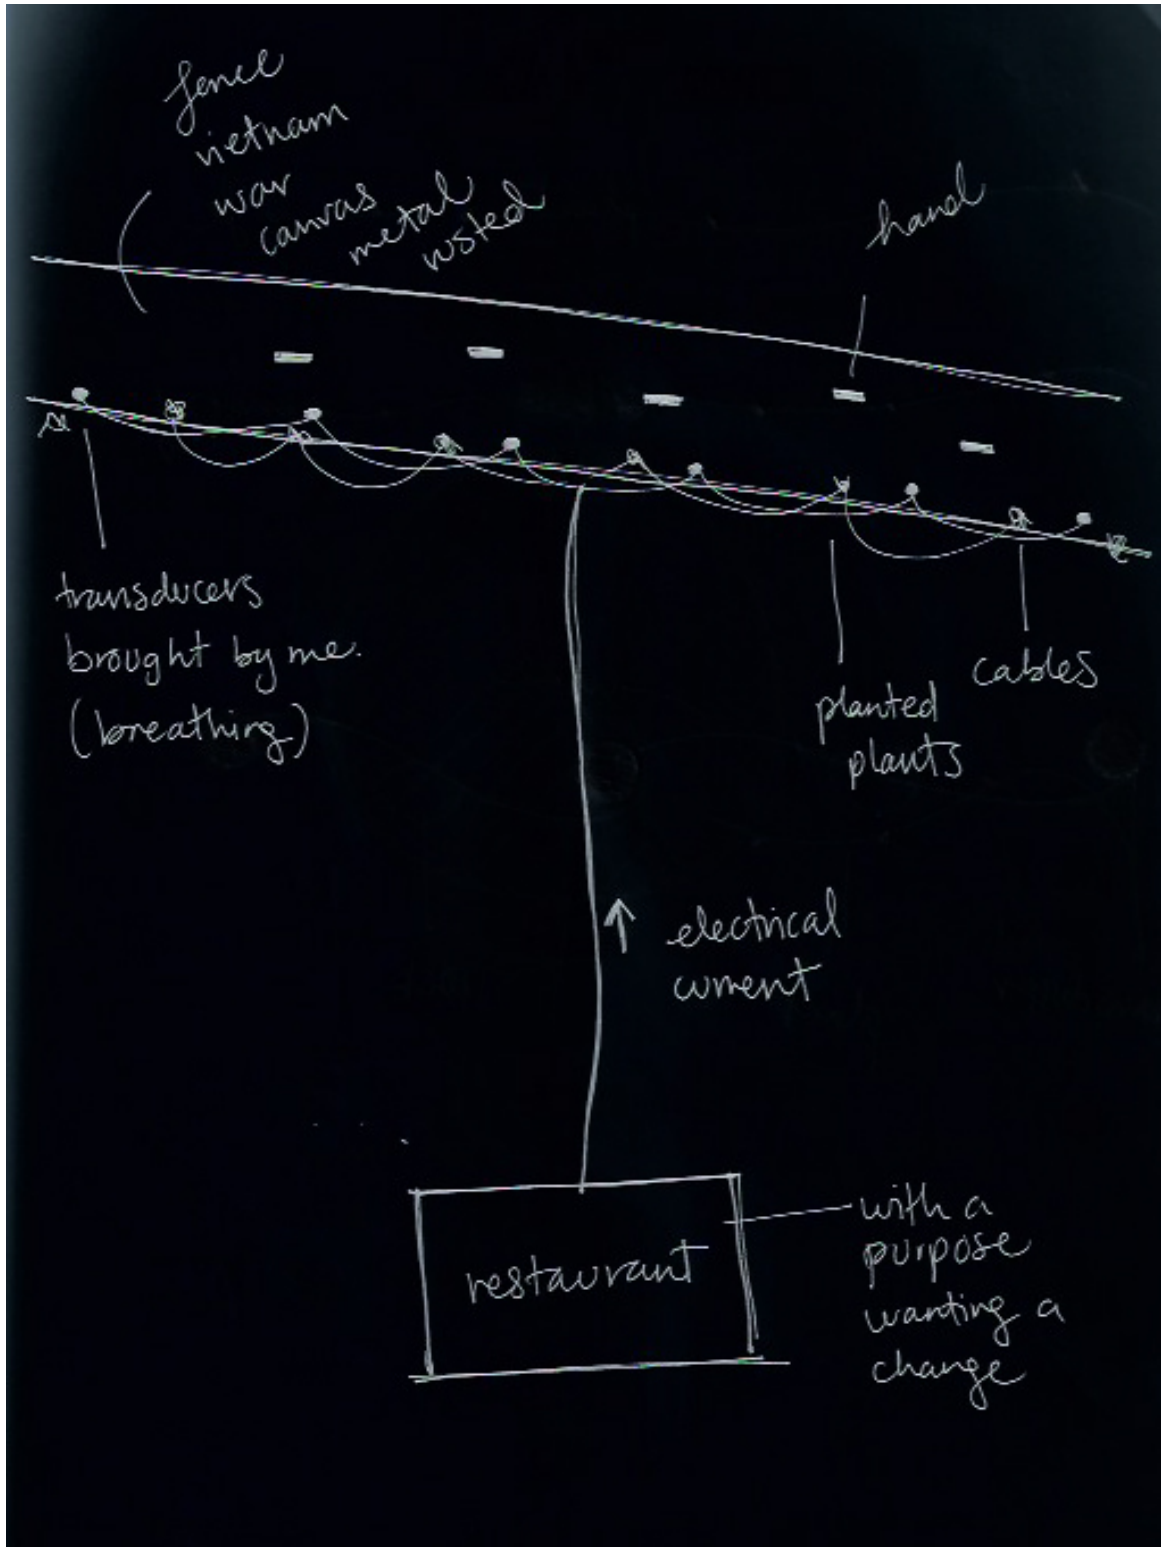 fence
vietnam
war
canvas
metal
rusted
hand
transducers
brought by me.
(breathing)
planted
plants
cables
electrical
current
restaurant
with a
purpose
wanting a
change